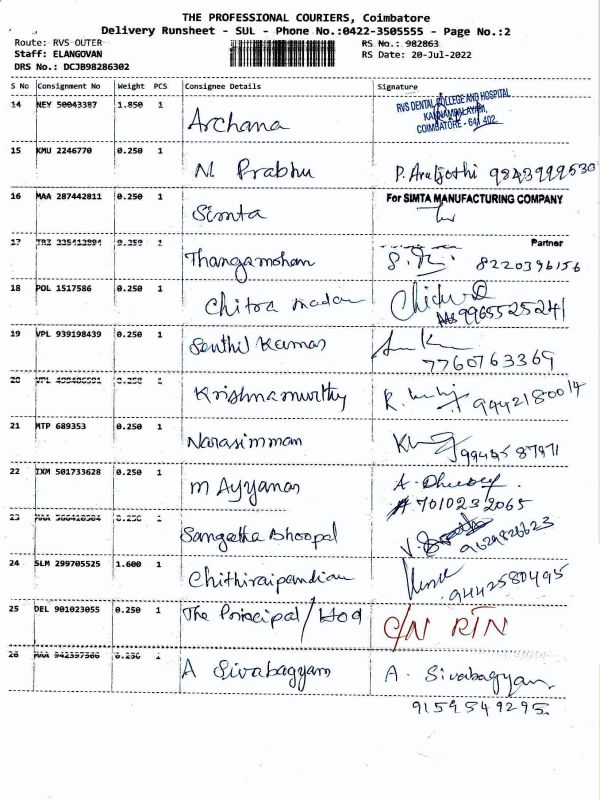 THE PROFESSIONAL COURIERS, Coimbatore
Delivery Runsheet - SUL - Phone No.:0422-3505555 - Page No.:2
Route: RVS OUTER RS No.: 982863
Staff: ELANGOVAN RS Date: 20-Jul-2022
DRS No.: DCJB98286302
S No Consignment No Weight PCS Consignee Details Signature
14 NEY 50043387 1.850 1 Archana RVS DENTAL COLLEGE AND HOSPITAL
KANNAMPALAYAM,
COIMBATORE - 641 402.
15 KMU 2246770 0.250 1 N. Prabhu P. Aruljothi 9843999530
16 MAA 287442811 0.250 1 Simta For SIMTA MANUFACTURING COMPANY
Partner
17 1 Thangamohan 8220396156
18 POL 1517586 0.250 1 Chitra madan
9965525241
19 VPL 939198439 0.250 1 Senthil Kumar
7760763369
20 Krishnamurthy 9442180014
21 MTP 689353 0.250 1 Narasimman
22 IXM 501733628 0.250 1 M Ayyanar
7010232065
23 Sangetha Bhoopal 9629826623
24 SLM 299705525 1.600 1 Chithiraipandian
9442580495
25 DEL 901023055 0.250 1 The Principal / HOD C/N RTN
26 A Sivabagyam A. Sivabagyam
9159549295